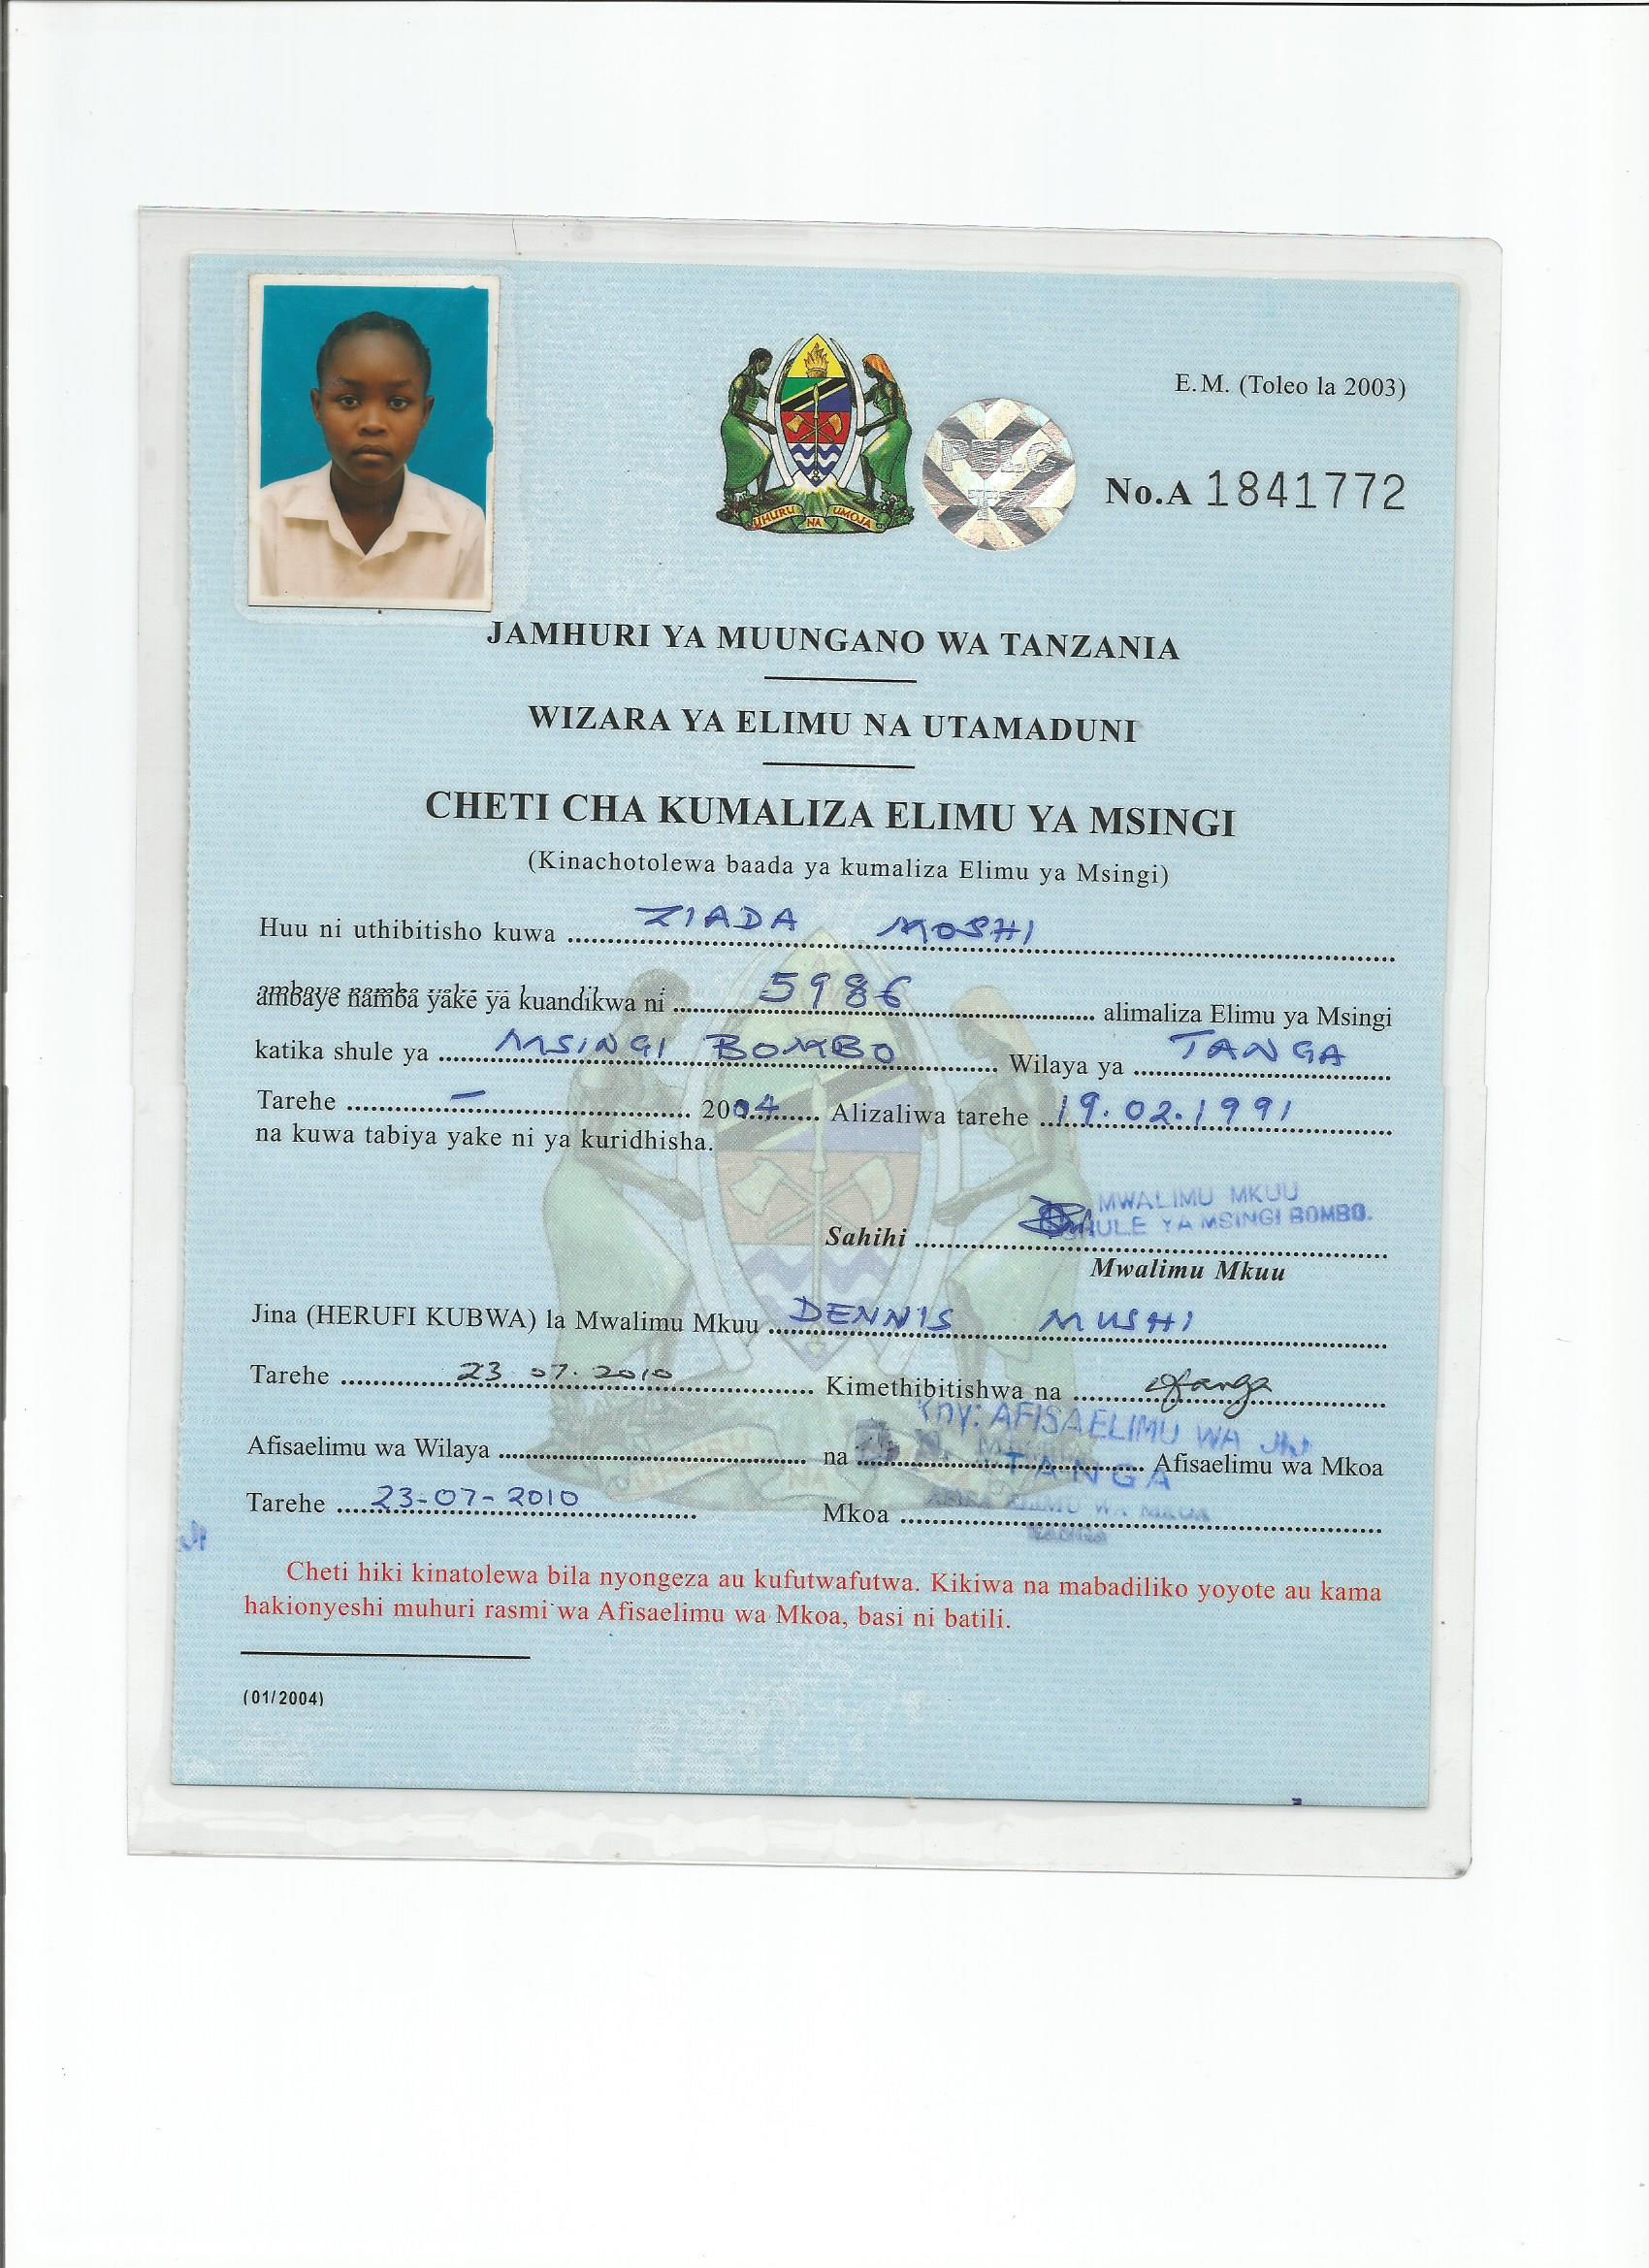 UHURU NA UMOJA
PELC
TZ
E.M. (Toleo la 2003)
No.A 1841772
JAMHURI YA MUUNGANO WA TANZANIA
WIZARA YA ELIMU NA UTAMADUNI
CHETI CHA KUMALIZA ELIMU YA MSINGI
(Kinachotolewa baada ya kumaliza Elimu ya Msingi)
Huu ni uthibitisho kuwa ZIADA MOSHI
ambaye namba yake ya kuandikwa ni 5986 alimaliza Elimu ya Msingi
katika shule ya MSINGI BOMBO Wilaya ya TANGA
Tarehe – 2004 Alizaliwa tarehe 19.02.1991
na kuwa tabiya yake ni ya kuridhisha.
MWALIMU MKUU
SHULE YA MSINGI BOMBO.
Sahihi
Mwalimu Mkuu
Jina (HERUFI KUBWA) la Mwalimu Mkuu DENNIS MUSHI
Tarehe 23 07. 2010 Kimethibitishwa na
Kny: AFISAELIMU WA JIJI
Afisaelimu wa Wilaya na Afisaelimu wa Mkoa
TANGA
Tarehe 23-07-2010 Mkoa
AFISA ELIMU WA MKOA
Cheti hiki kinatolewa bila nyongeza au kufutwafutwa. Kikiwa na mabadiliko yoyote au kama
hakionyeshi muhuri rasmi wa Afisaelimu wa Mkoa, basi ni batili.
(01/2004)